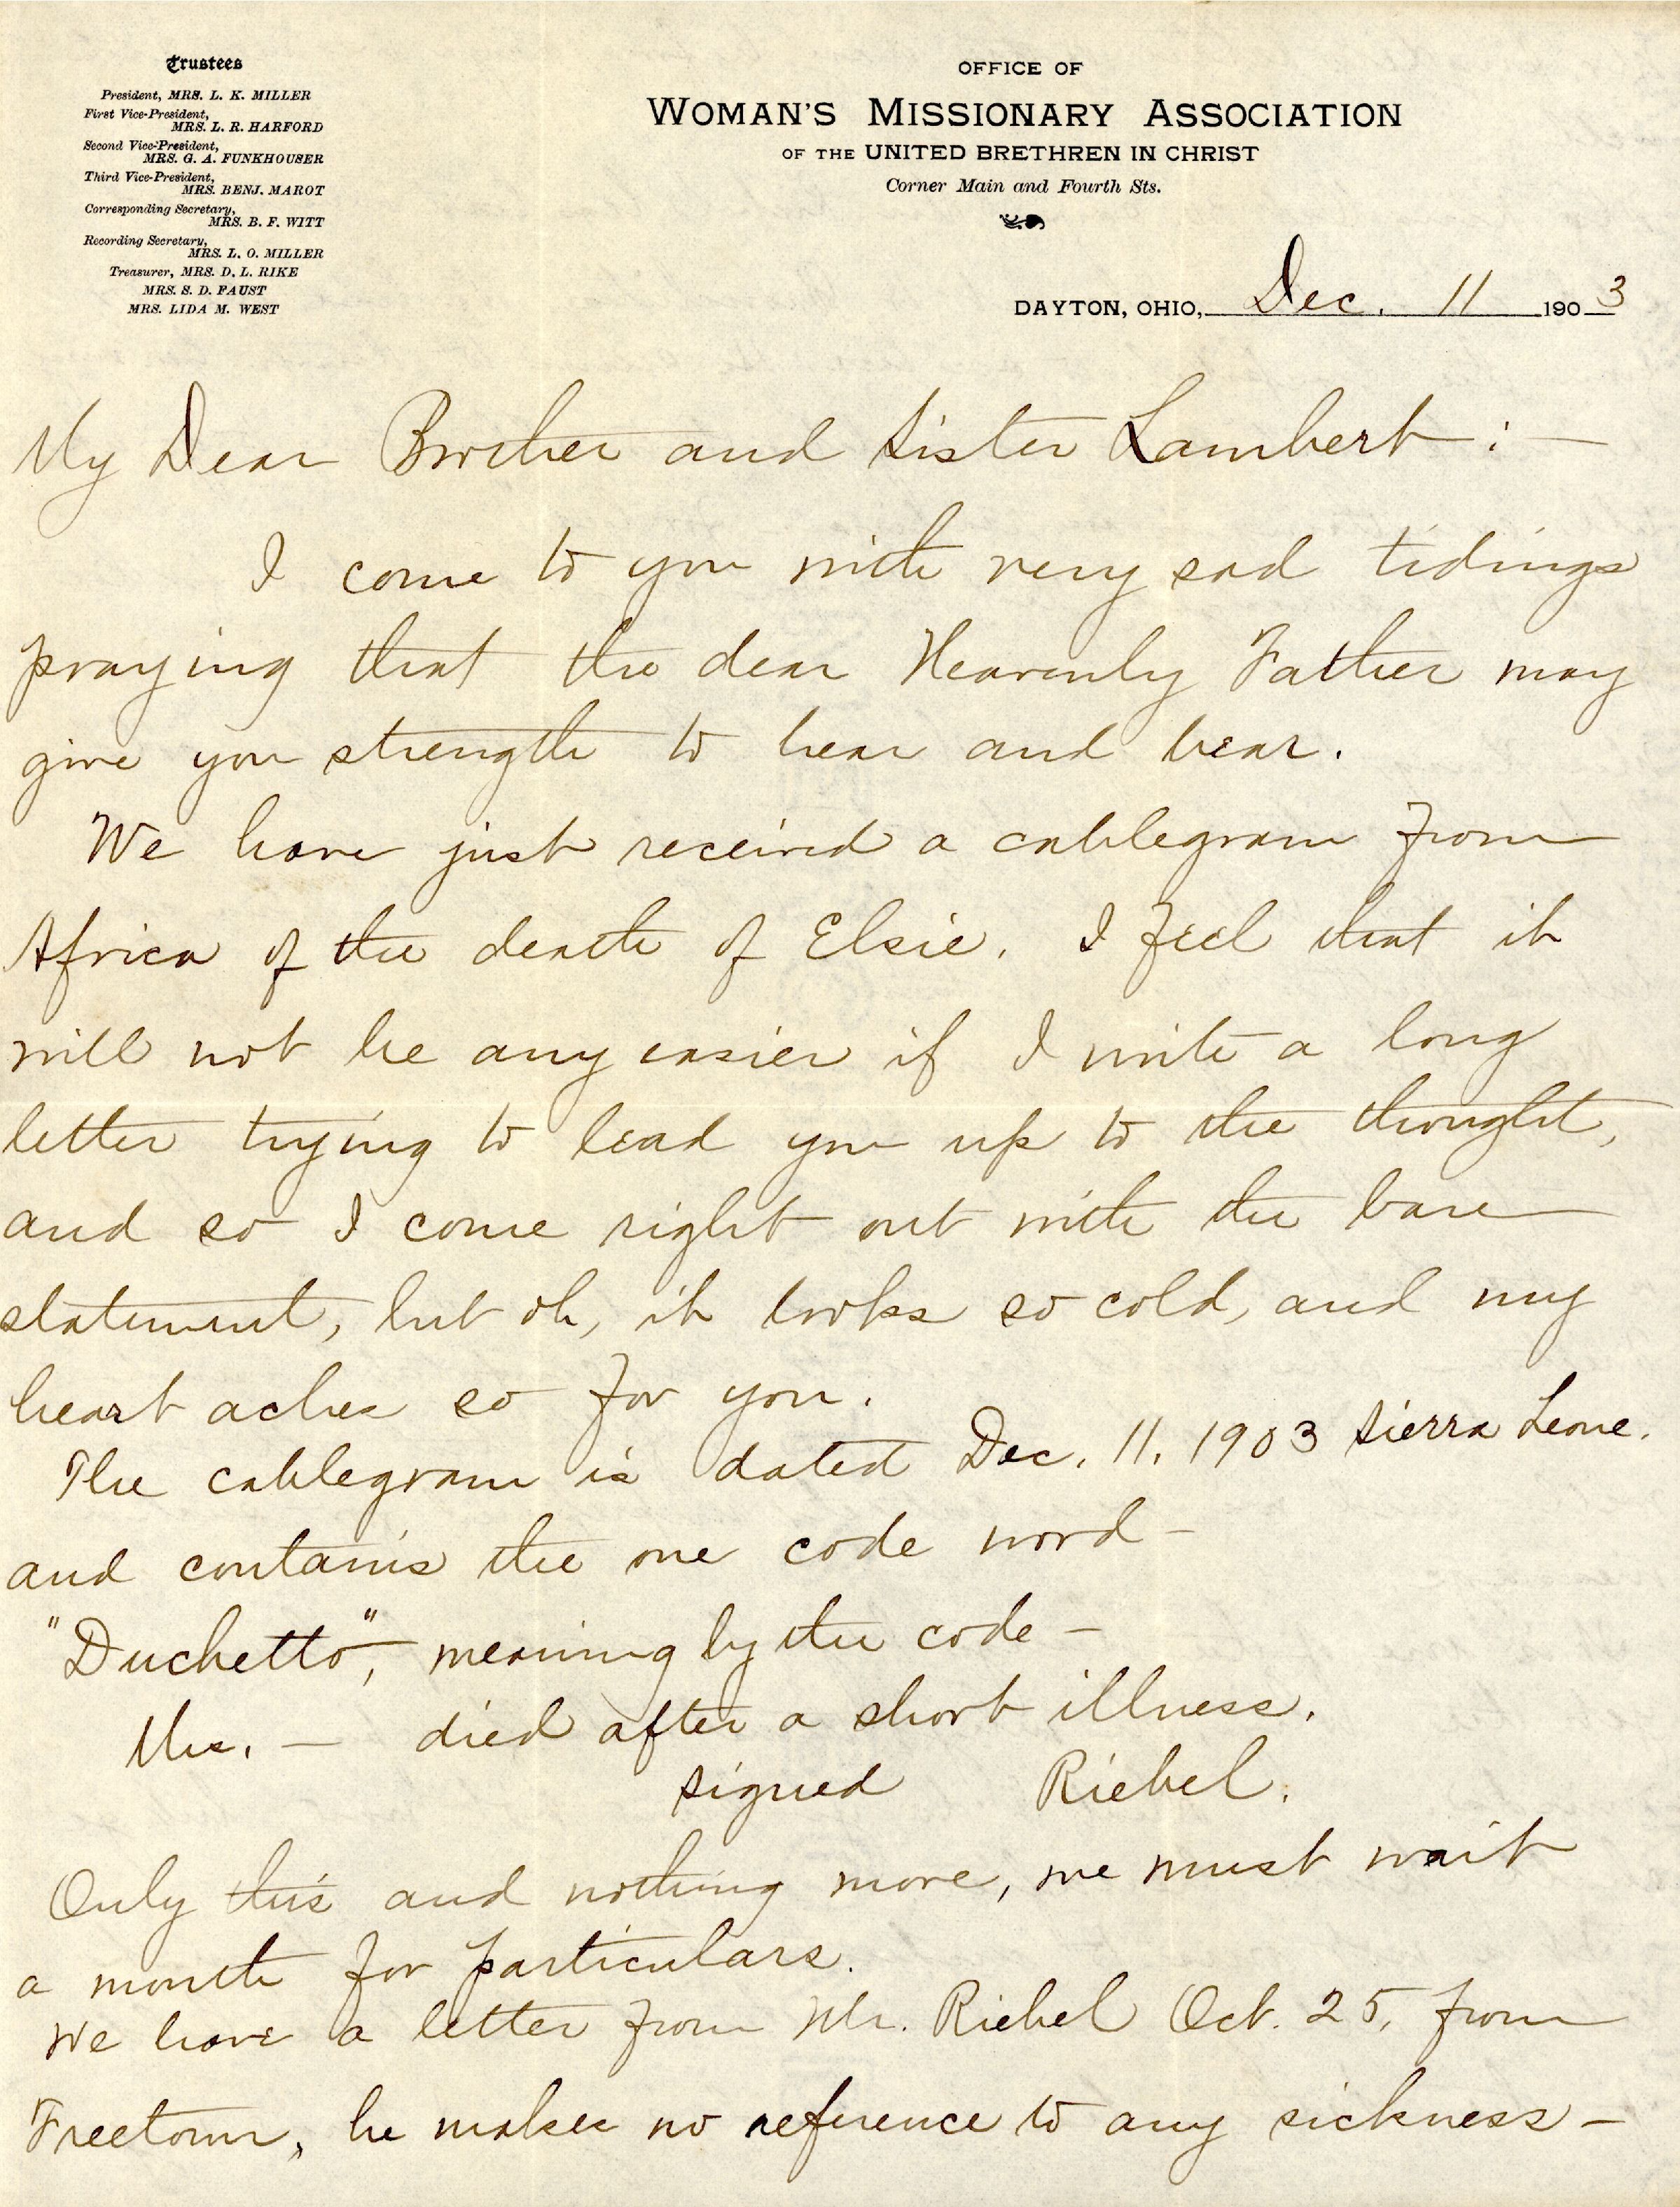 Trustees
President, MRS. L. K. MILLER
First Vice-President,
MRS. L. R. HARFORD
Second Vice-President,
MRS. G. A. FUNKHOUSER
Third Vice-President,
MRS. BENJ. MAROT
Corresponding Secretary,
MRS. B. F. WITT
Recording Secretary,
MRS. L. O. MILLER
Treasurer, MRS. D. L. RIKE
MRS. S. D. FAUST
MRS. LIDA M. WEST
OFFICE OF
WOMAN'S MISSIONARY ASSOCIATION
OF THE UNITED BRETHREN IN CHRIST
Corner Main and Fourth Sts.
DAYTON, OHIO, Dec. 11 1903
My Dear Brother and Sister Lambert : —
I come to you with very sad tidings
praying that the dear Heavenly Father may
give you strength to hear and bear.
We have just received a cablegram from
Africa of the death of Elsie. I feel that it
will not be any easier if I write a long
letter trying to lead you up to the thought,
and so I come right out with the bare
statement, but oh, it looks so cold, and my
heart aches so for you.
The cablegram is dated Dec. 11. 1903 Sierra Leone.
and contains the one code word —
"Duchetto", meaning by the code —
Mrs. — died after a short illness.
signed Riebel.
Only this and nothing more, we must wait
a month for particulars.
We have a letter from Mr. Riebel Oct. 25, from
Freetown, he makes no reference to any sickness —